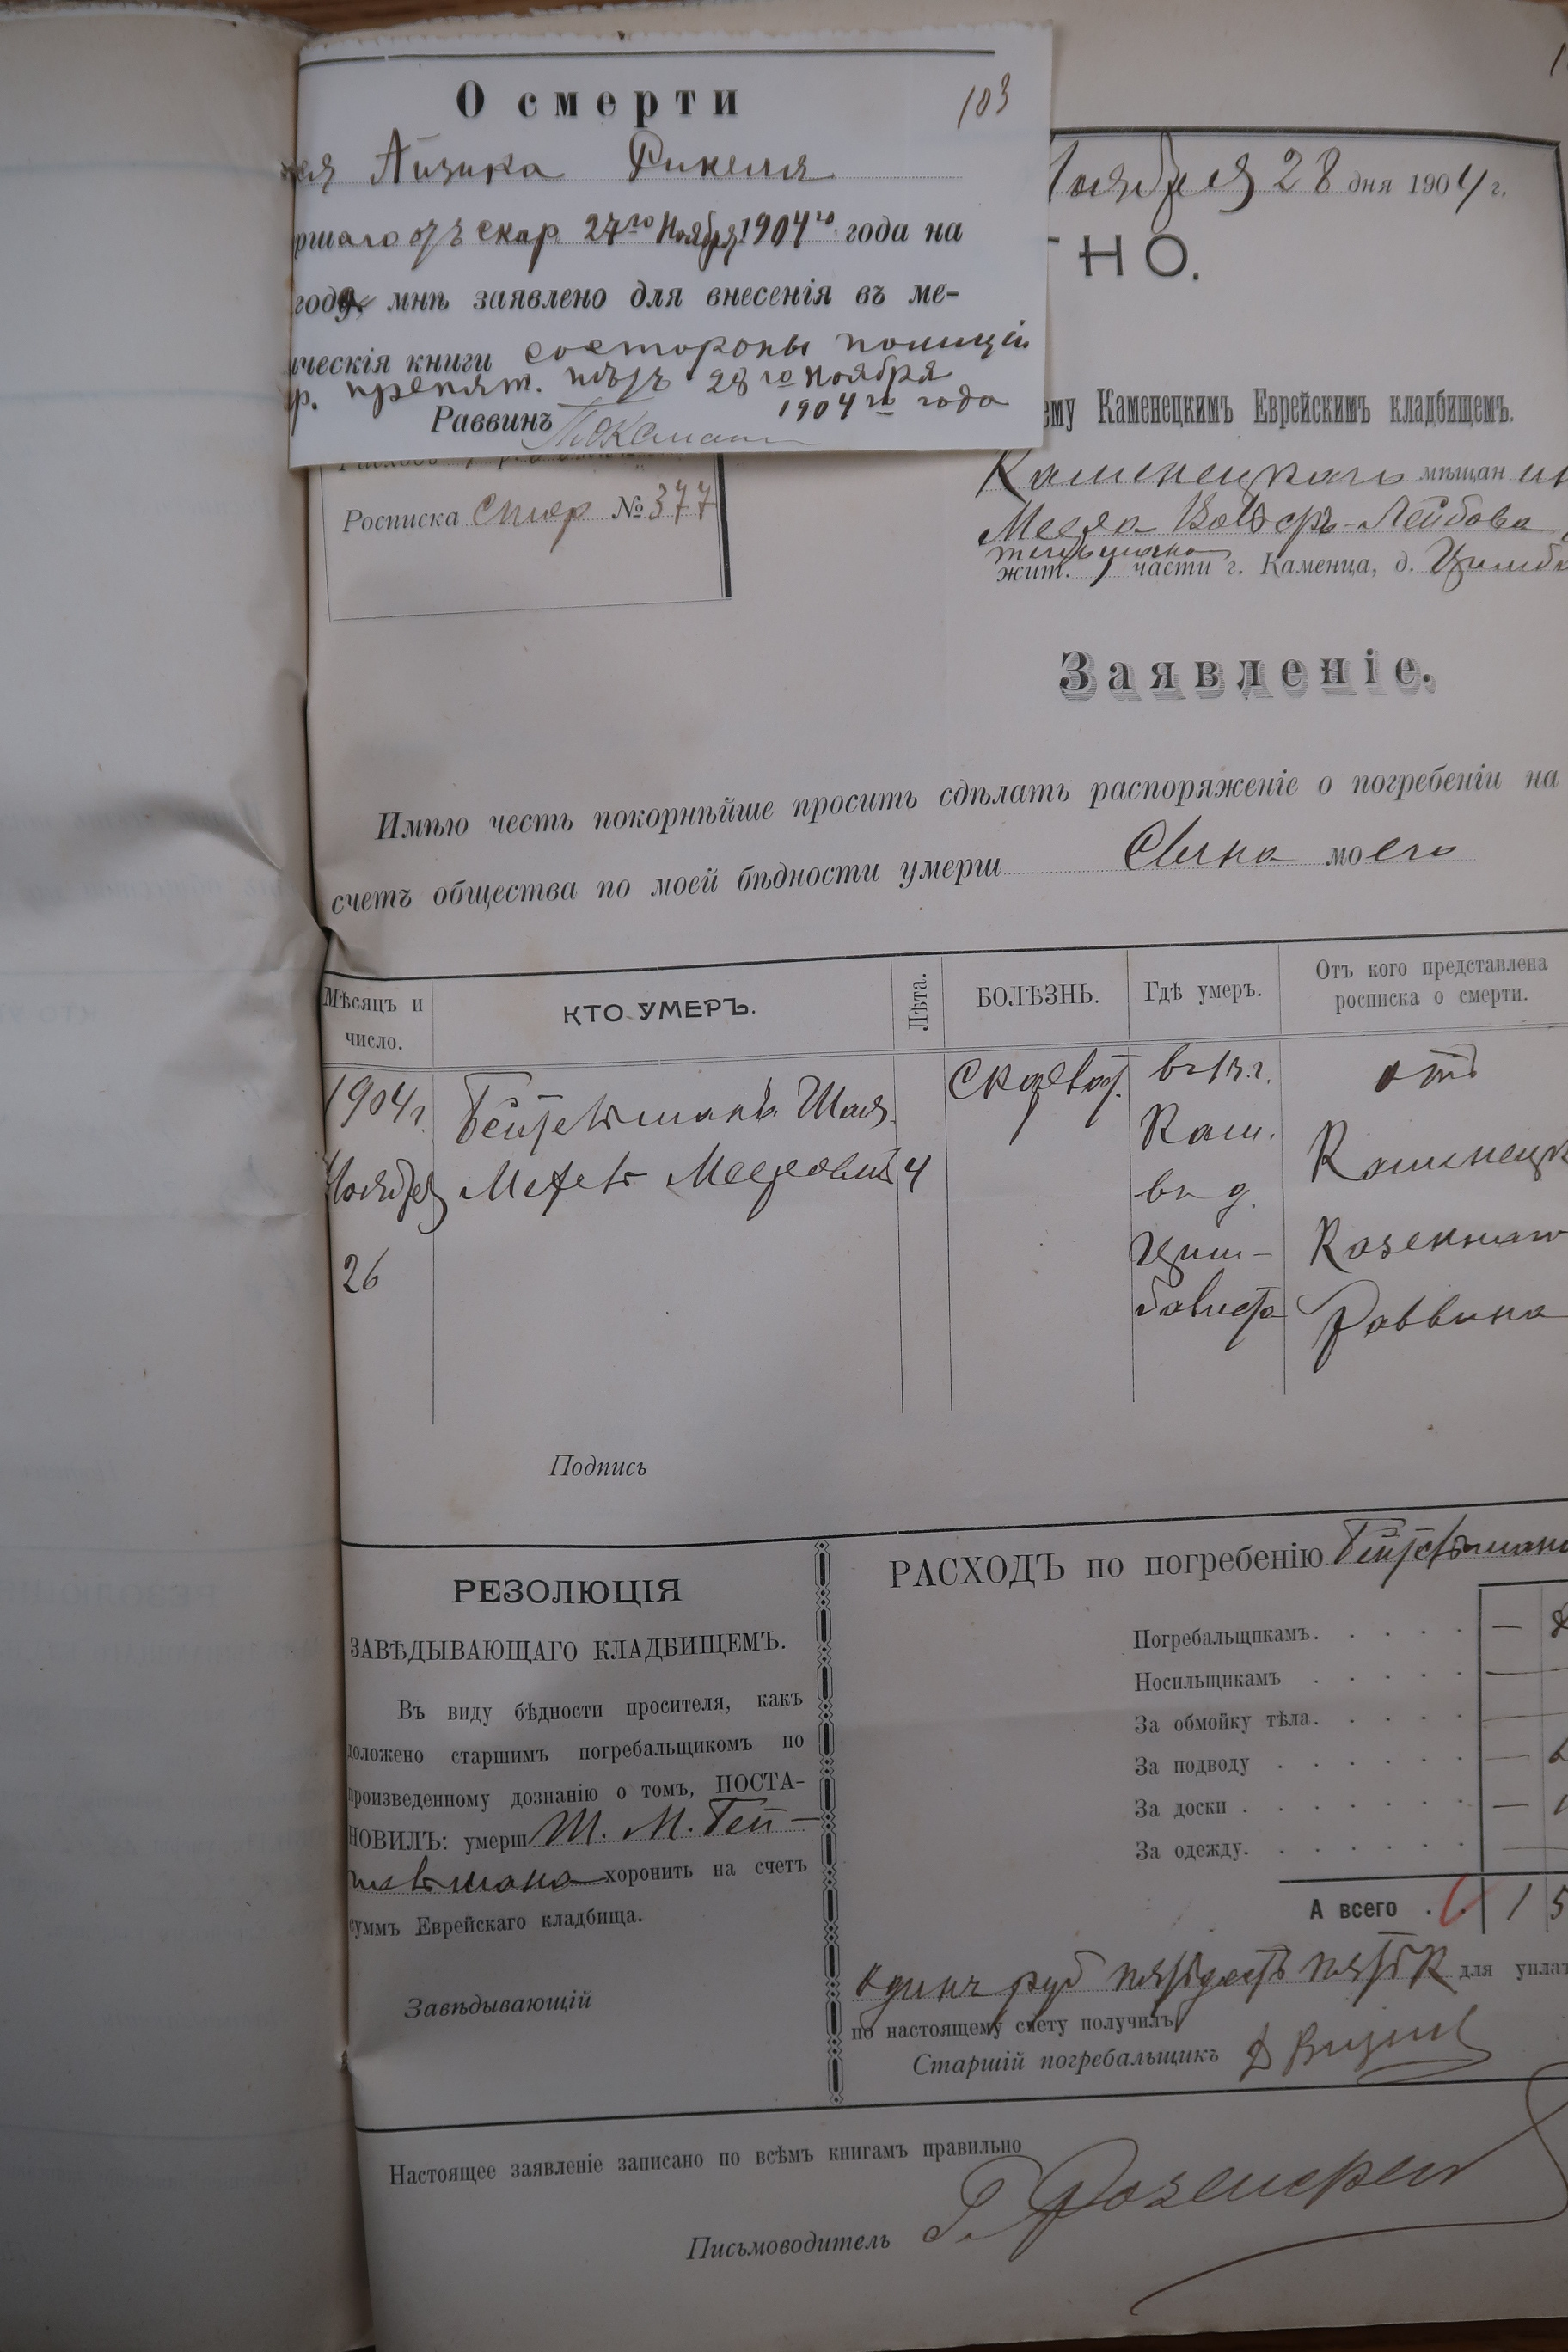 О смерти
103
Айзика Финеля
ршаго отъ скар. 27го Ноября 1904го года на
году, мнѣ заявлено для внесенія въ ме-
ическія книги состороны полиціи
р. препят. нѣтъ 28го Ноября
1904го года
Раввинъ
Ноября 28 дня 1904 г.
ТНО.
ему Каменецкимъ Еврейскимъ кладбищемъ.
Росписка смер №377
Каменецкаго мѣщан ин
Лейбова
жит. части г. Каменца, д.
Заявленіе.
Имѣю честь покорнѣйше просить сдѣлать распоряженіе о погребеніи на
счетъ общества по моей бѣдности умерш Сына моего
Мѣсяцъ и число.
КТО УМЕРЪ.
Лѣта.
БОЛѢЗНЬ.
Гдѣ умеръ.
Отъ кого представлена росписка о смерти.
1904г.
Ноября
26
Шая
4
в г.
Кам.
в д.
Цим-
отъ
Каменецк
Казеннаго
Раввина
Подпись
РЕЗОЛЮЦІЯ
ЗАВѢДЫВАЮЩАГО КЛАДБИЩЕМЪ.
Въ виду бѣдности просителя, какъ
доложено старшимъ погребальщикомъ по
произведенному дознанію о томъ, ПОСТА-
НОВИЛЪ: умерш Ш. М. Гей-
хоронить на счетъ
суммъ Еврейскаго кладбища.
Завѣдывающій
РАСХОДЪ по погребенію
Погребальщикамъ.
Носильщикамъ
За обмойку тѣла.
За подводу
За доски
За одежду.
А всего 1 5
Одинъ руб пятьдесятъ пять К для уплат
по настоящему счету получилъ
Старшій погребальщикъ
Настоящее заявленіе записано по всѣмъ книгамъ правильно
Письмоводитель